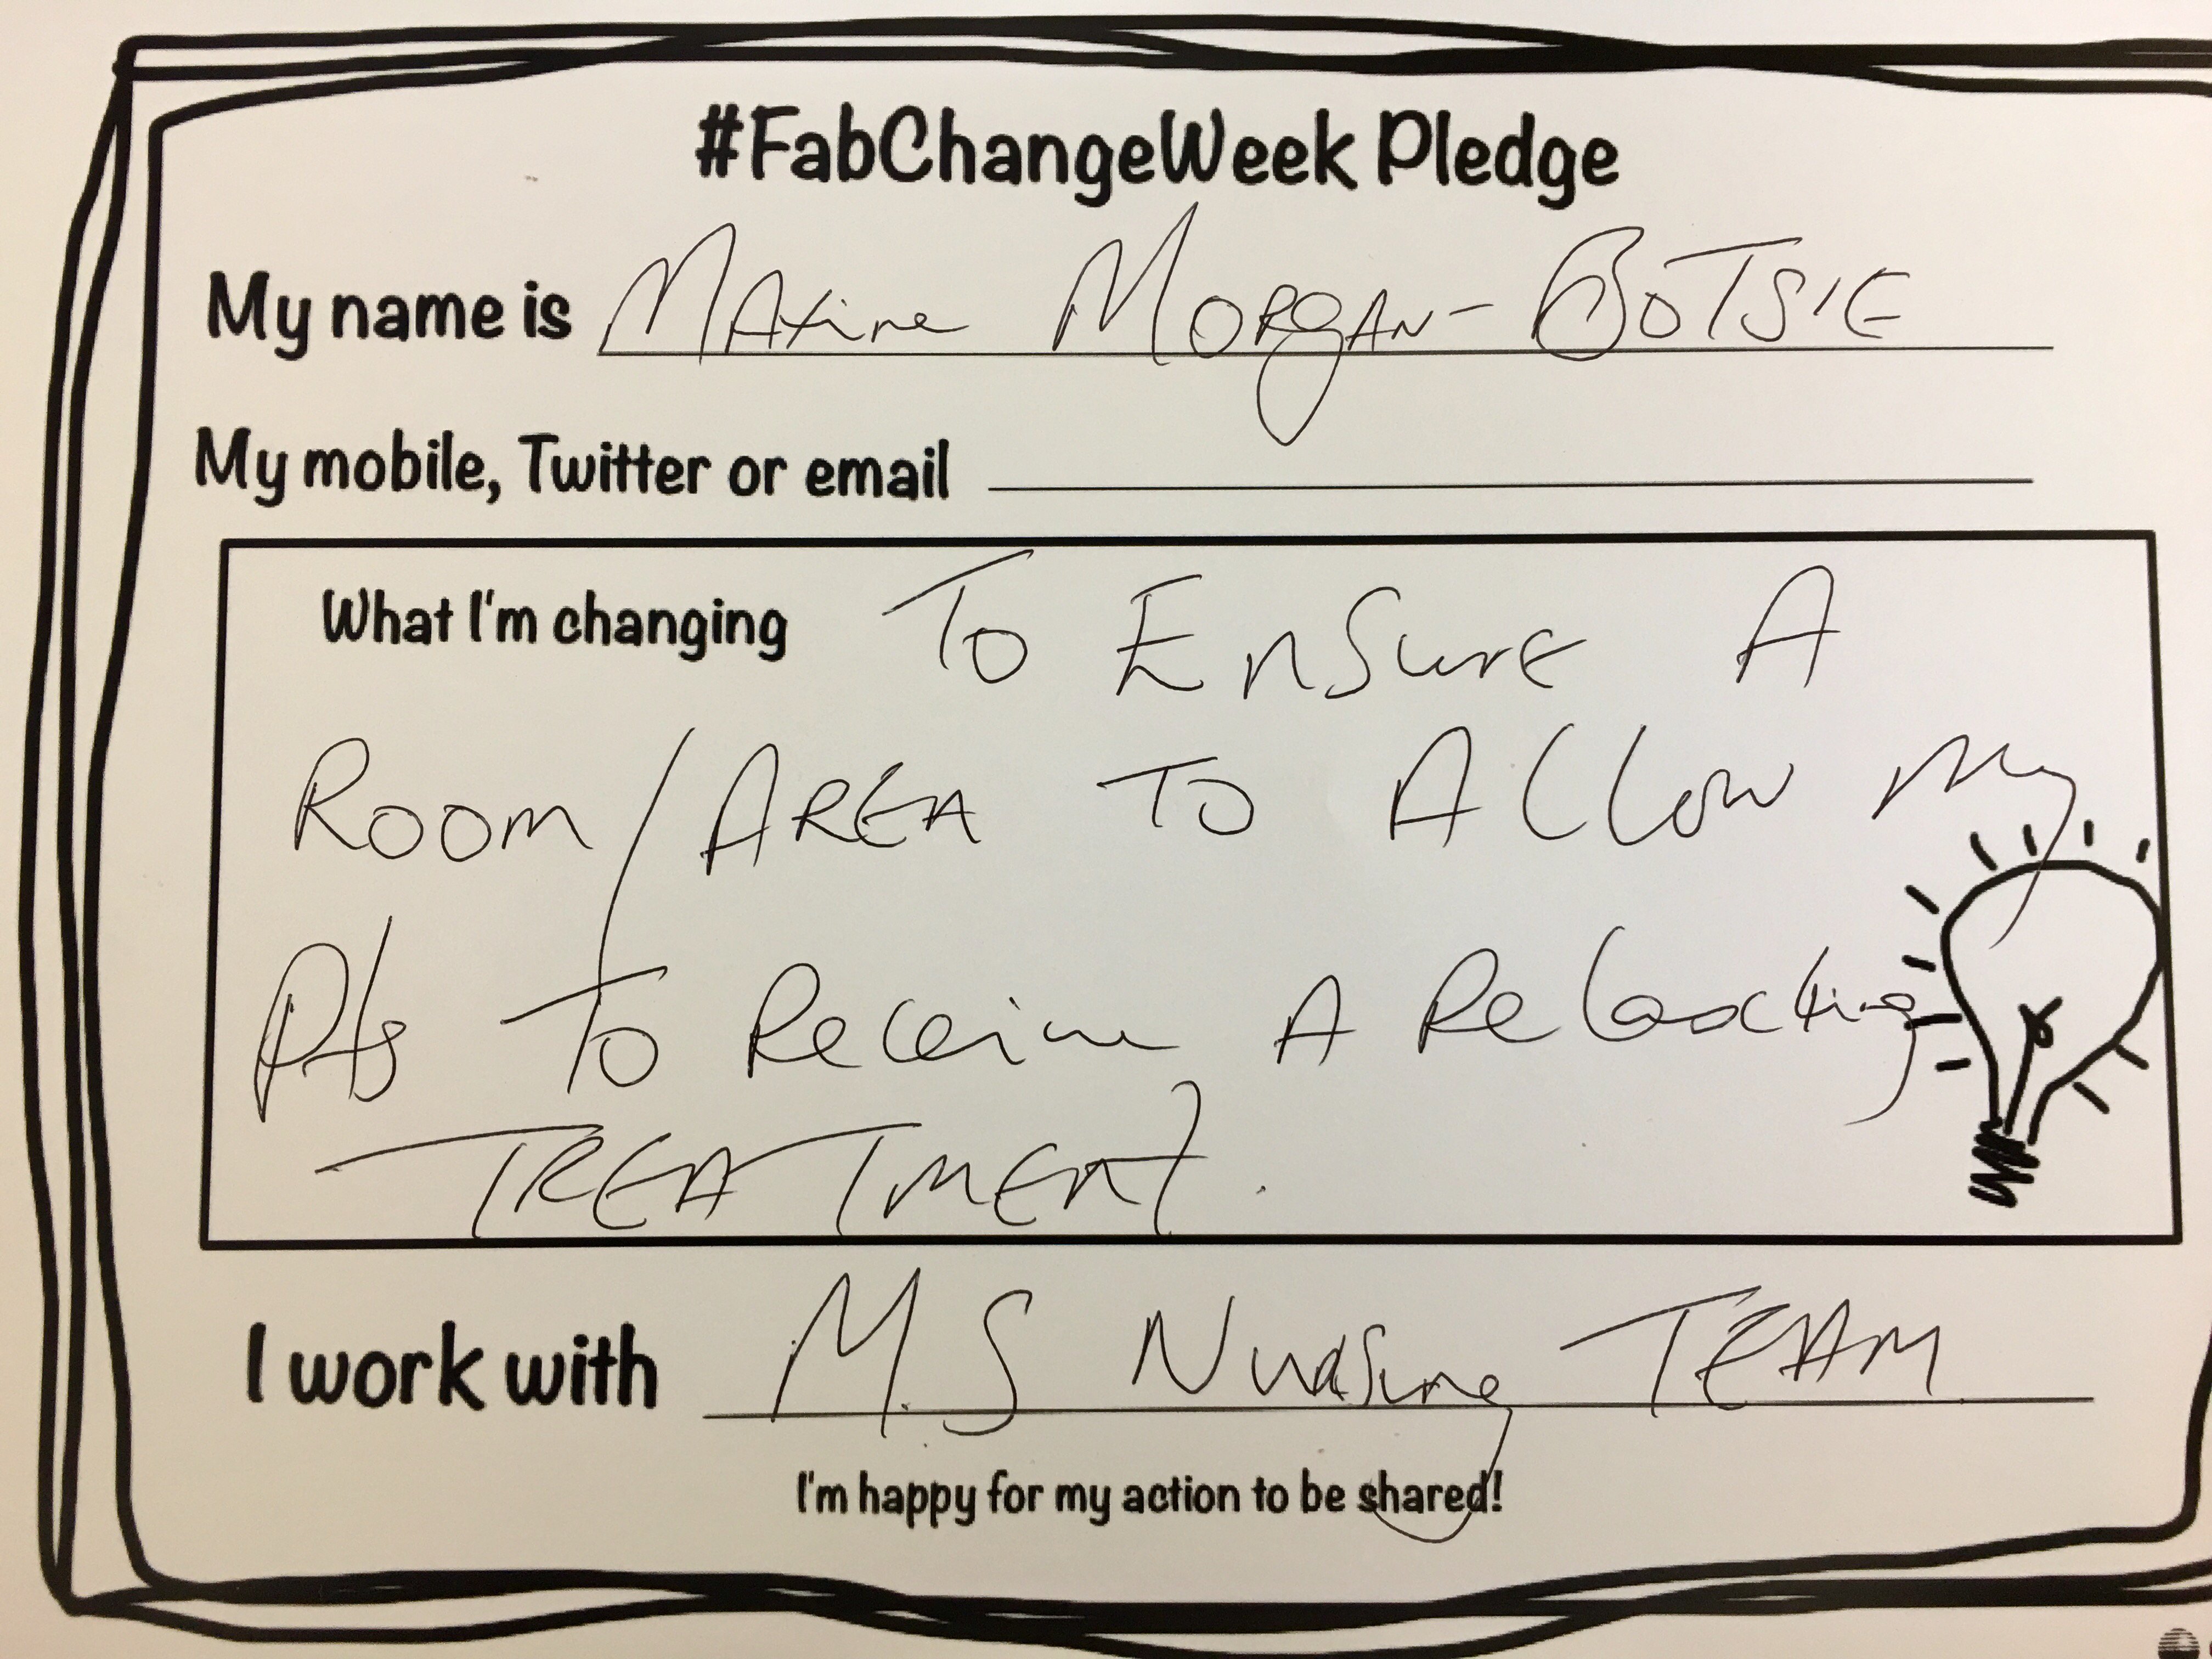 #FabChangeWeek Pledge
My name is Maxine MORgAN-BOTSIE
My mobile, Twitter or email
What I'm changing To EnSurE A
Room/AREA To Allow my
Pts To Receive A Relaxing
TREATMENT.
I work with M.S Nursing TEAM
I'm happy for my action to be shared!